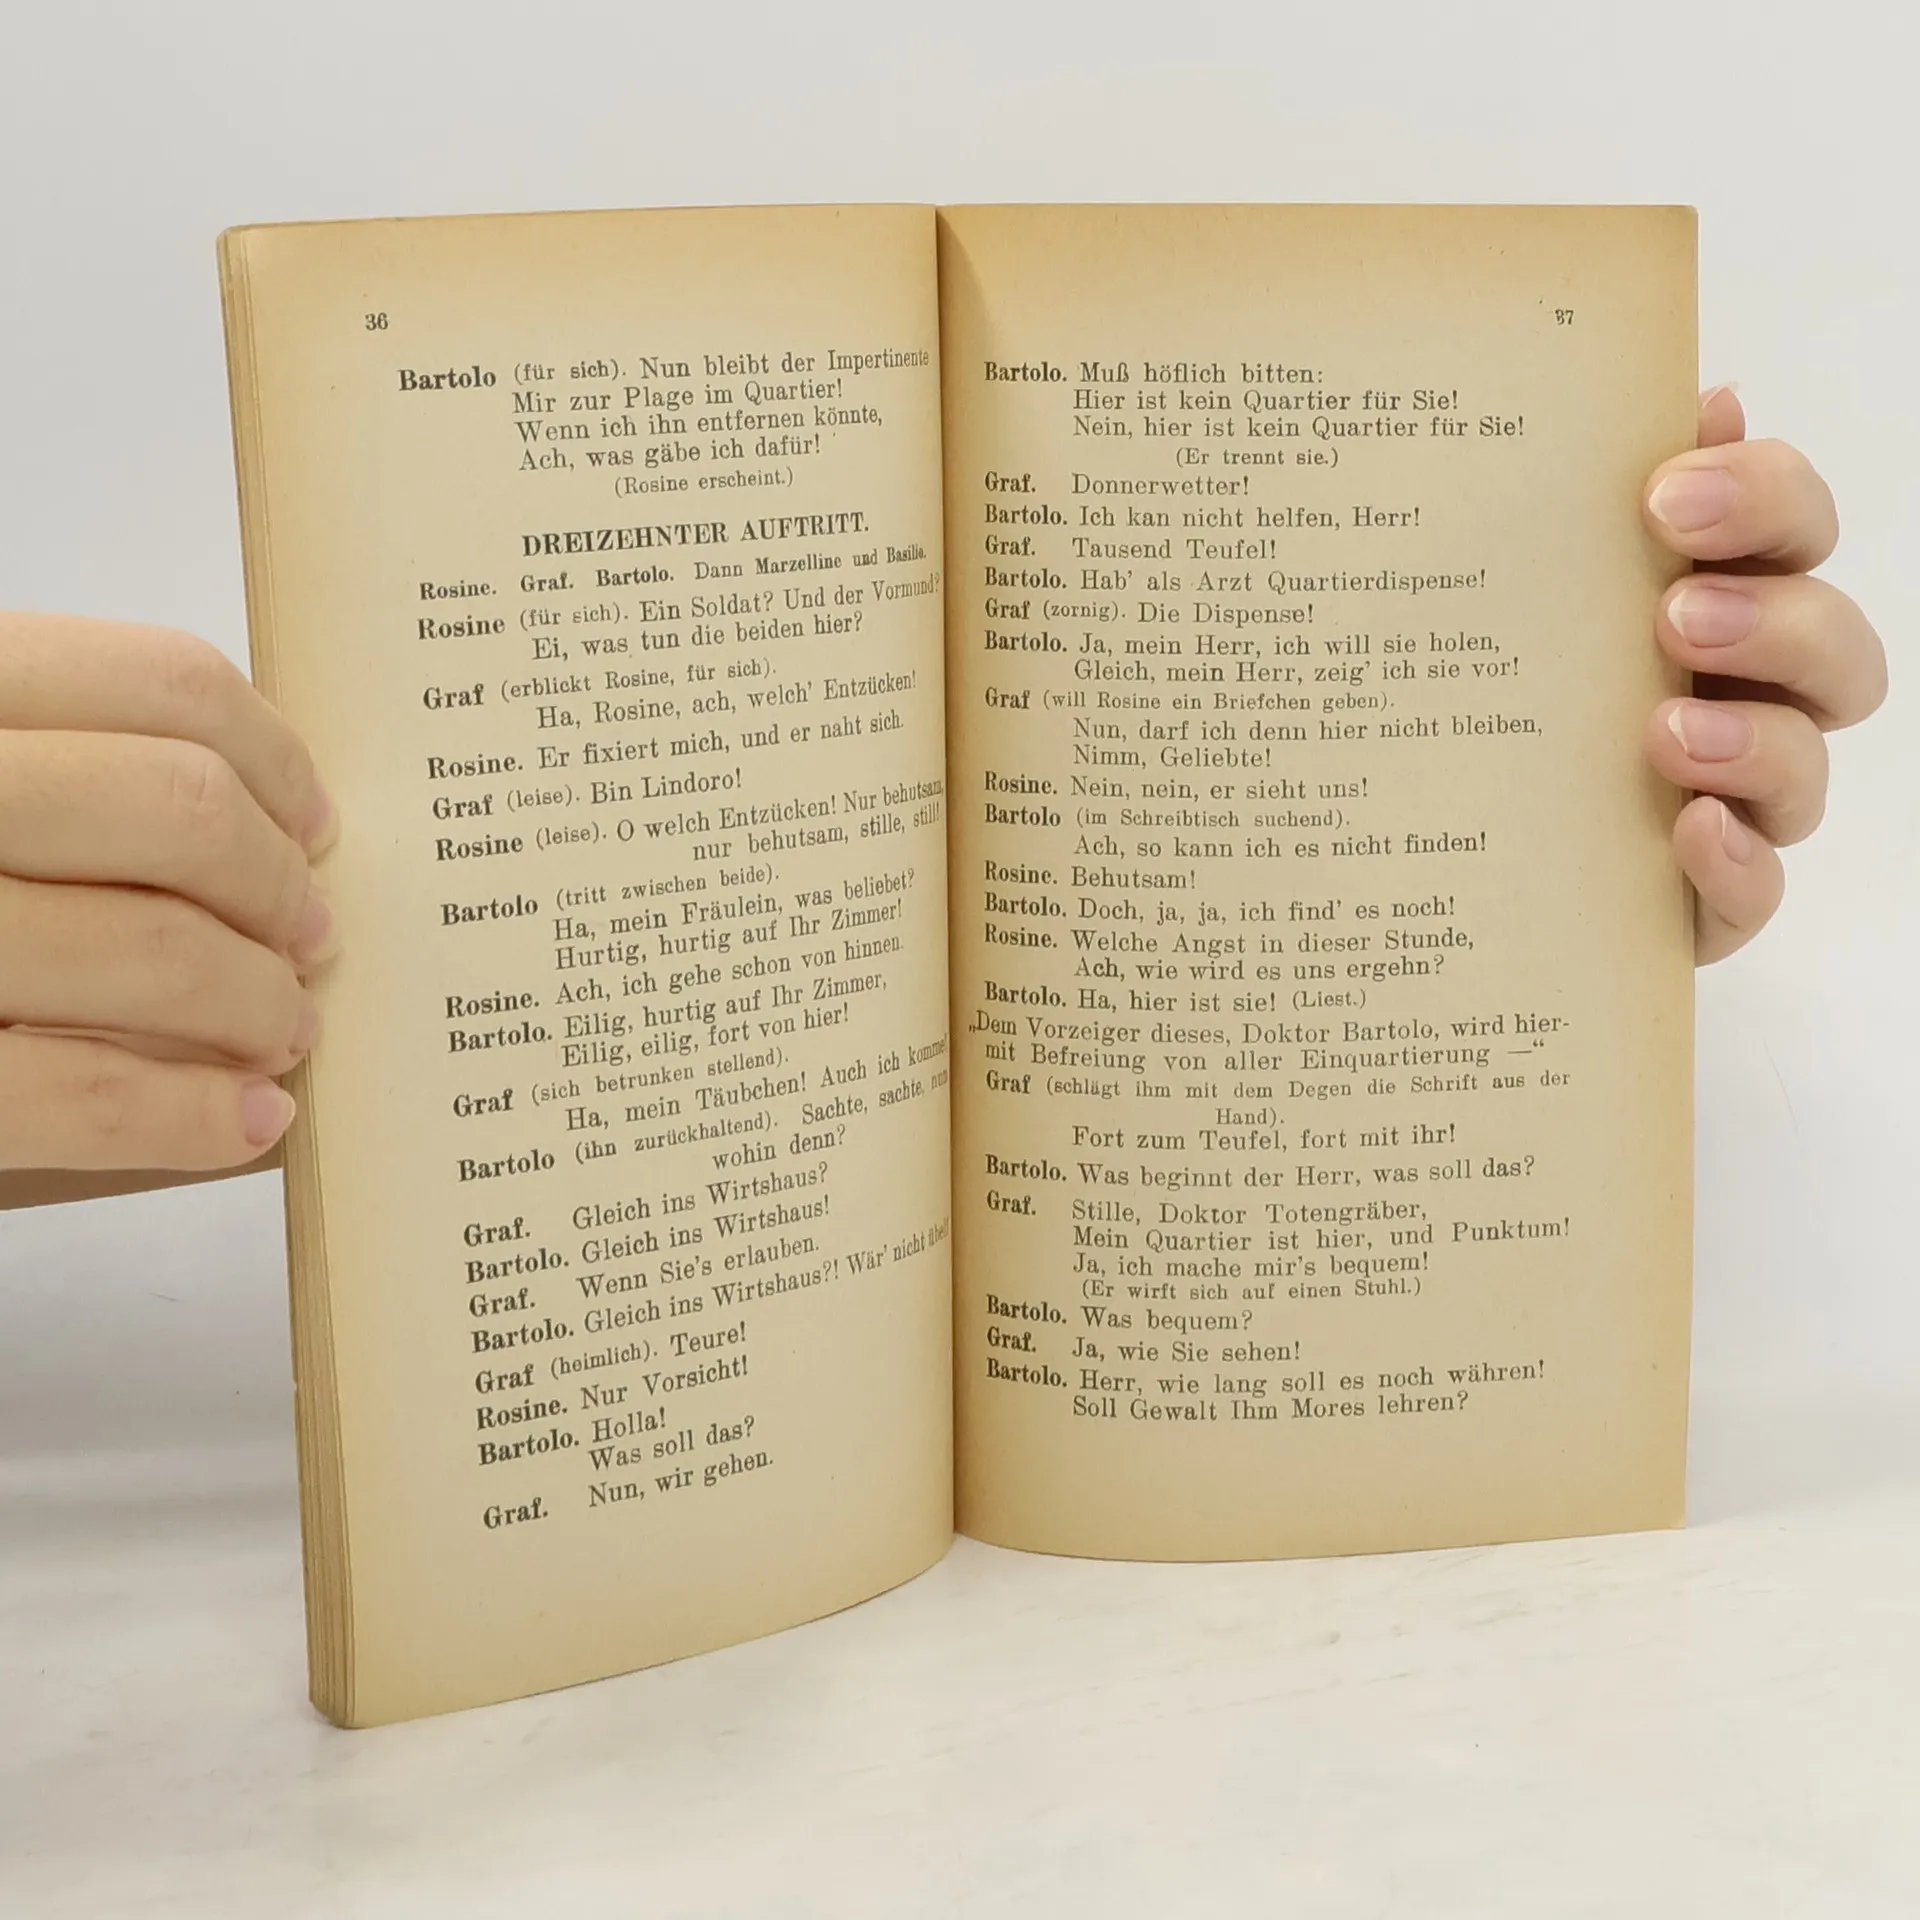 36
Bartolo (für sich). Nun bleibt der Impertinente
Mir zur Plage im Quartier!
Wenn ich ihn entfernen könnte,
Ach, was gäbe ich dafür!
(Rosine erscheint.)
DREIZEHNTER AUFTRITT.
Rosine. Graf. Bartolo. Dann Marzelline und Basilio.
Rosine (für sich). Ein Soldat? Und der Vormund?
Ei, was tun die beiden hier?
Graf (erblickt Rosine, für sich).
Ha, Rosine, ach, welch' Entzücken!
Rosine. Er fixiert mich, und er naht sich.
Graf (leise). Bin Lindoro!
Rosine (leise). O welch Entzücken! Nur behutsam,
nur behutsam, stille, still!
Bartolo (tritt zwischen beide).
Ha, mein Fräulein, was beliebet?
Hurtig, hurtig auf Ihr Zimmer!
Rosine. Ach, ich gehe schon von hinnen.
Bartolo. Eilig, hurtig auf Ihr Zimmer,
Eilig, eilig, fort von hier!
Graf (sich betrunken stellend).
Ha, mein Täubchen! Auch ich komme!
Bartolo (ihn zurückhaltend). Sachte, sachte, nun
wohin denn?
Graf. Gleich ins Wirtshaus?
Bartolo. Gleich ins Wirtshaus!
Graf. Wenn Sie's erlauben.
Bartolo. Gleich ins Wirtshaus?! Wär' nicht übel!
Graf (heimlich). Teure!
Rosine. Nur Vorsicht!
Bartolo. Holla!
Was soll das?
Graf. Nun, wir gehen.
37
Bartolo. Muß höflich bitten:
Hier ist kein Quartier für Sie!
Nein, hier ist kein Quartier für Sie!
(Er trennt sie.)
Graf. Donnerwetter!
Bartolo. Ich kan nicht helfen, Herr!
Graf. Tausend Teufel!
Bartolo. Hab' als Arzt Quartierdispense!
Graf (zornig). Die Dispense!
Bartolo. Ja, mein Herr, ich will sie holen,
Gleich, mein Herr, zeig' ich sie vor!
Graf (will Rosine ein Briefchen geben).
Nun, darf ich denn hier nicht bleiben,
Nimm, Geliebte!
Rosine. Nein, nein, er sieht uns!
Bartolo (im Schreibtisch suchend).
Ach, so kann ich es nicht finden!
Rosine. Behutsam!
Bartolo. Doch, ja, ja, ich find' es noch!
Rosine. Welche Angst in dieser Stunde,
Ach, wie wird es uns ergehn?
Bartolo. Ha, hier ist sie! (Liest.)
„Dem Vorzeiger dieses, Doktor Bartolo, wird hier-
mit Befreiung von aller Einquartierung —“
Graf (schlägt ihm mit dem Degen die Schrift aus der
Hand).
Fort zum Teufel, fort mit ihr!
Bartolo. Was beginnt der Herr, was soll das?
Graf. Stille, Doktor Totengräber,
Mein Quartier ist hier, und Punktum!
Ja, ich mache mir's bequem!
(Er wirft sich auf einen Stuhl.)
Bartolo. Was bequem?
Graf. Ja, wie Sie sehen!
Bartolo. Herr, wie lang soll es noch währen!
Soll Gewalt Ihm Mores lehren?